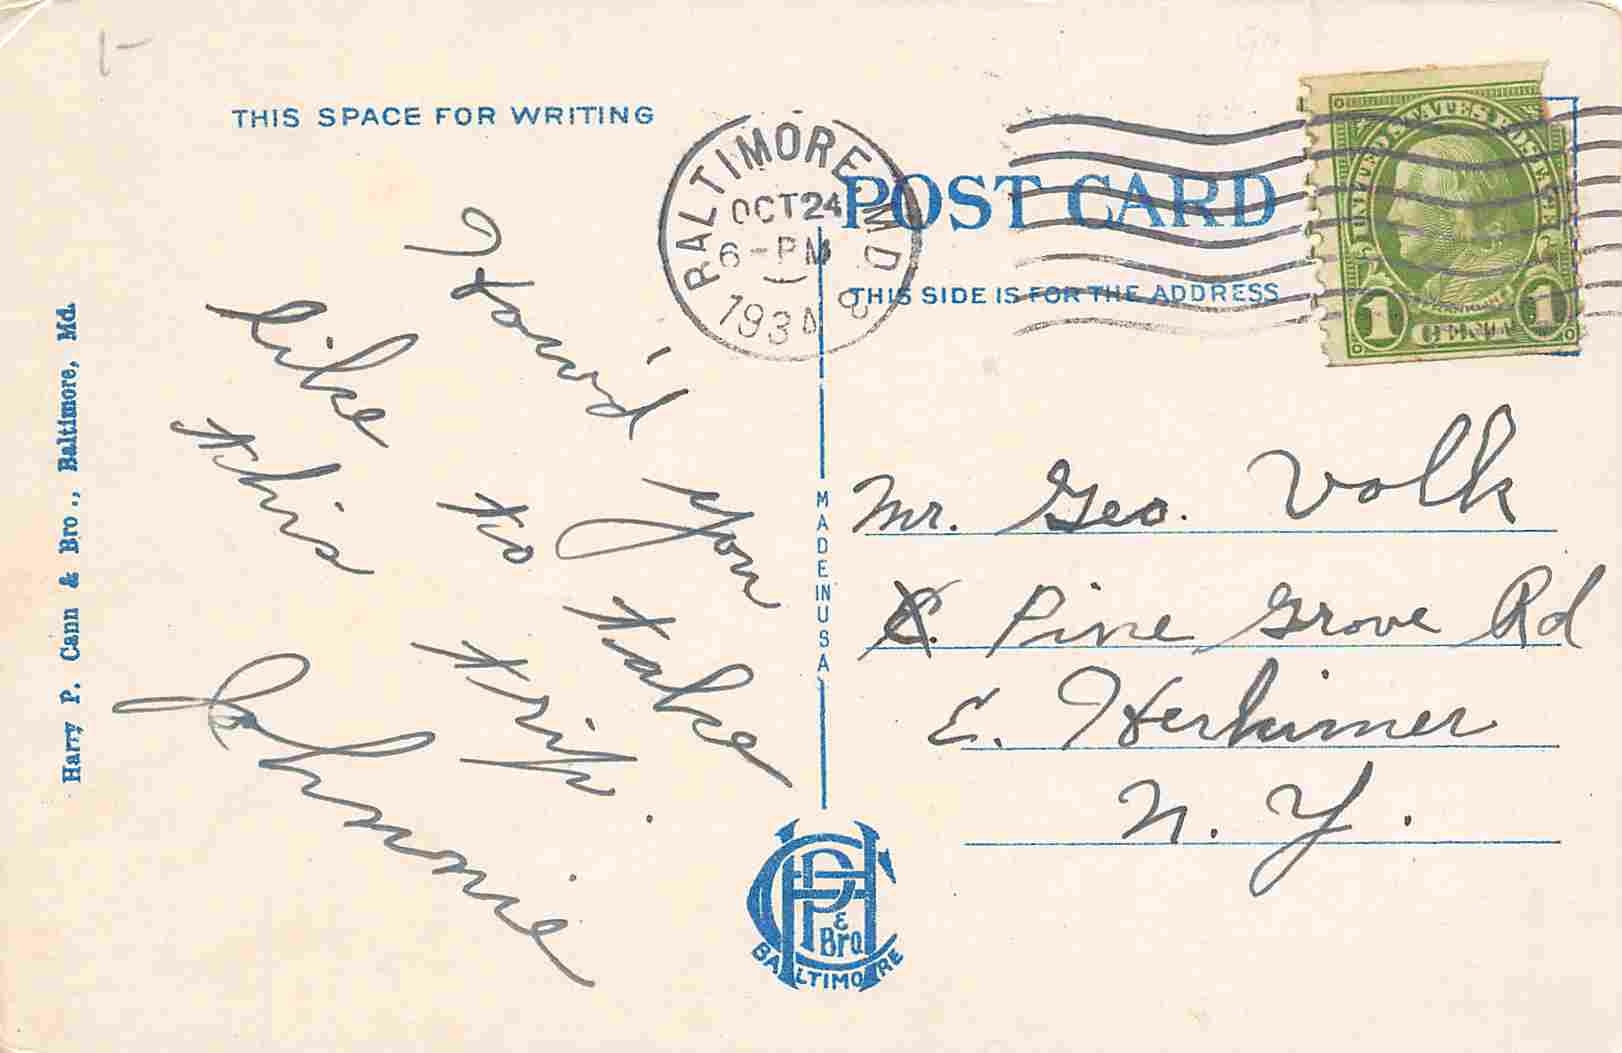 THIS SPACE FOR WRITING
How'd you
like to take
this trip.
Johnnie
Harry P. Cann & Bro., Baltimore, Md.
BALTIMORE, MD
OCT 24
6 - PM
193
POST CARD
THIS SIDE IS FOR THE ADDRESS
UNITED STATES POSTAGE
1 1
MADE IN USA
Mr. Geo. Volk
Pine Grove Rd
E. Herkimer
N. Y.
HPC & Bro.
BALTIMORE